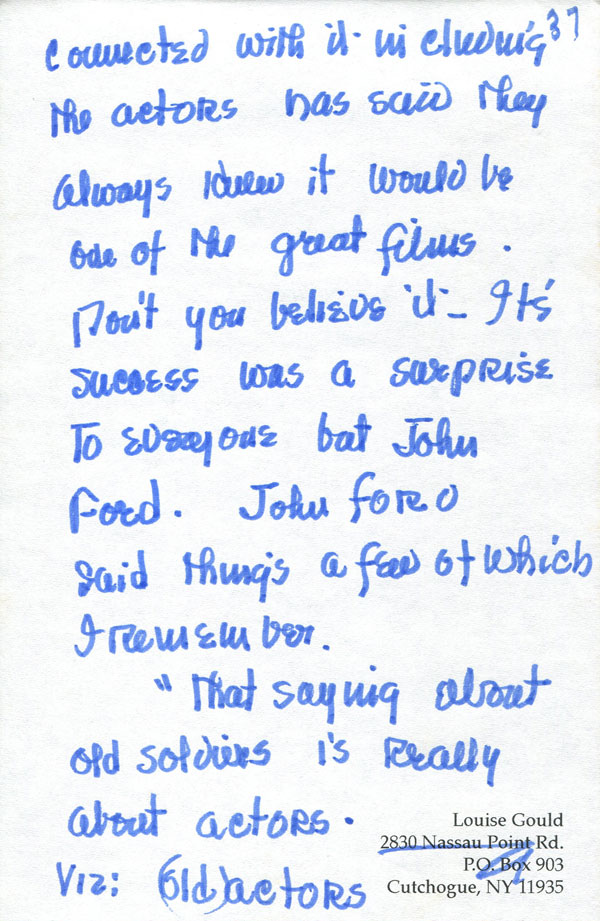 37
connected with it in cluding
the actors has said they
always knew it would be
one of the great films.
Don't you believe it – Its'
success was a surprise
To everyone but John
Ford. John Ford
said things a few of which
I remember.
"That saying about
old soldiers is really
about actors.
Viz: (old) actors
Louise Gould
2830 Nassau Point Rd.
P.O. Box 903
Cutchogue, NY 11935